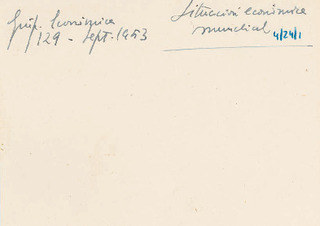 Inf. Económica
129 - sept. 1953
Situación económica
mundial 4/24/1